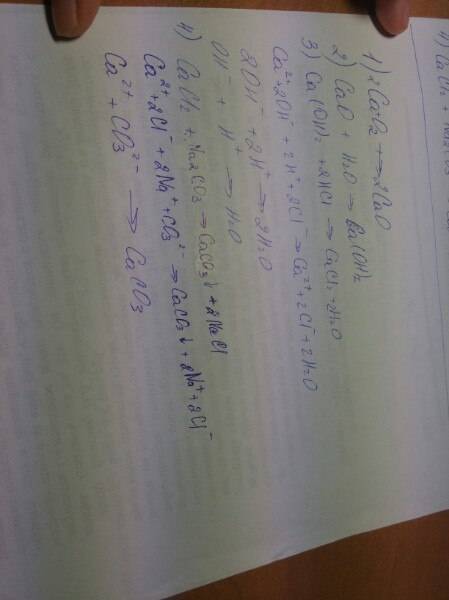 1) 2Ca+O₂ → 2CaO
2) CaO + H₂O → Ba(OH)₂
3) Ca(OH)₂ + 2HCl → CaCl₂ + 2H₂O
Ca²⁺+2OH⁻ + 2H⁺ + 2Cl⁻ → Ca²⁺ + 2Cl⁻ + 2H₂O
2OH⁻ + 2H⁺ → 2H₂O
OH⁻ + H⁺ → H₂O
4) CaCl₂ + Na₂CO₃ → CaCO₃↓ + 2NaCl
Ca²⁺+2Cl⁻ + 2Na⁺ + CO₃²⁻ → CaCO₃↓ + 2Na⁺ + 2Cl⁻
Ca²⁺ + CO₃²⁻ → CaCO₃
4) CaCl₂ + Na₂CO₃